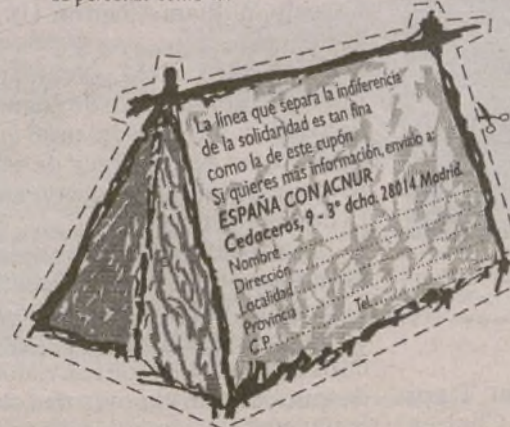 La línea que separa la indiferencia
de la solidaridad es tan fina
como la de este cupón
Si quieres más información, envíalo a:
ESPAÑA CON ACNUR
Cedaceros, 9 - 3º dcha. 28014 Madrid.
Nombre
Dirección
Localidad
Provincia
C.P. Tel.